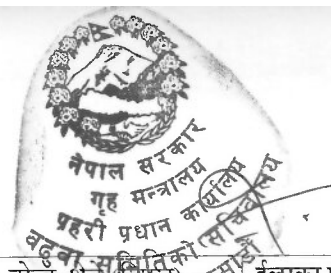 नेपाल सरकार
गृह मन्त्रालय
प्रहरी प्रधान कार्यालय
बढुवा समितिको सचिवालय